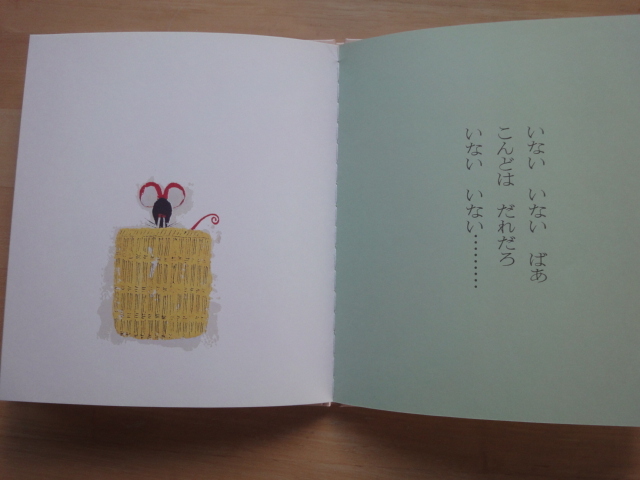 いない　いない　ばあ
こんどは　だれだろ
いない　いない………